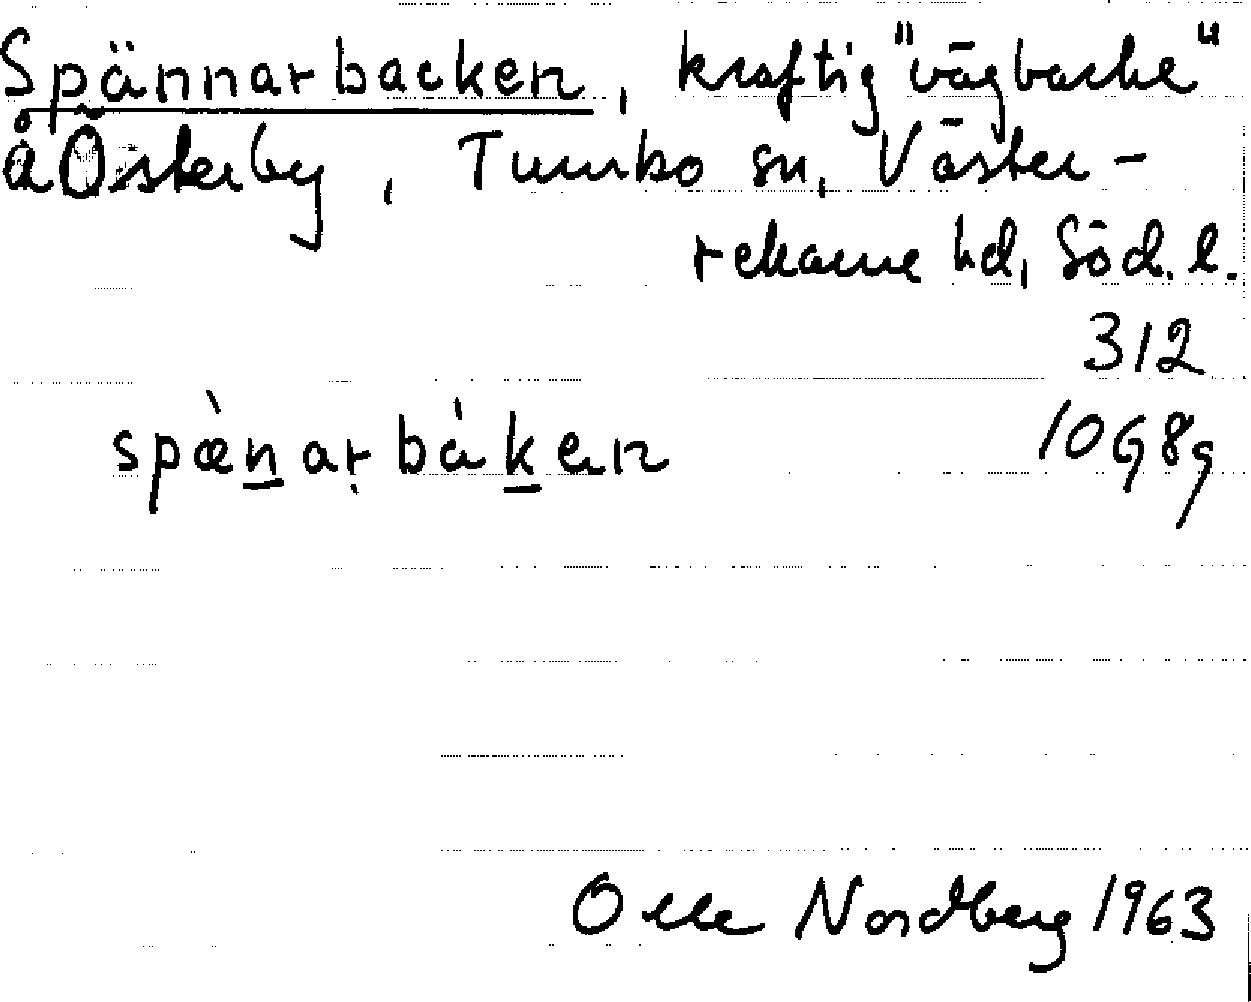 Spännarbacken, kraftig "vägbacke"
å Österby, Tumbo sn, Väster-
rekarne hd, Söd. l.
312
spæ̀nạrbáken 10G8g
Olle Nordberg 1963